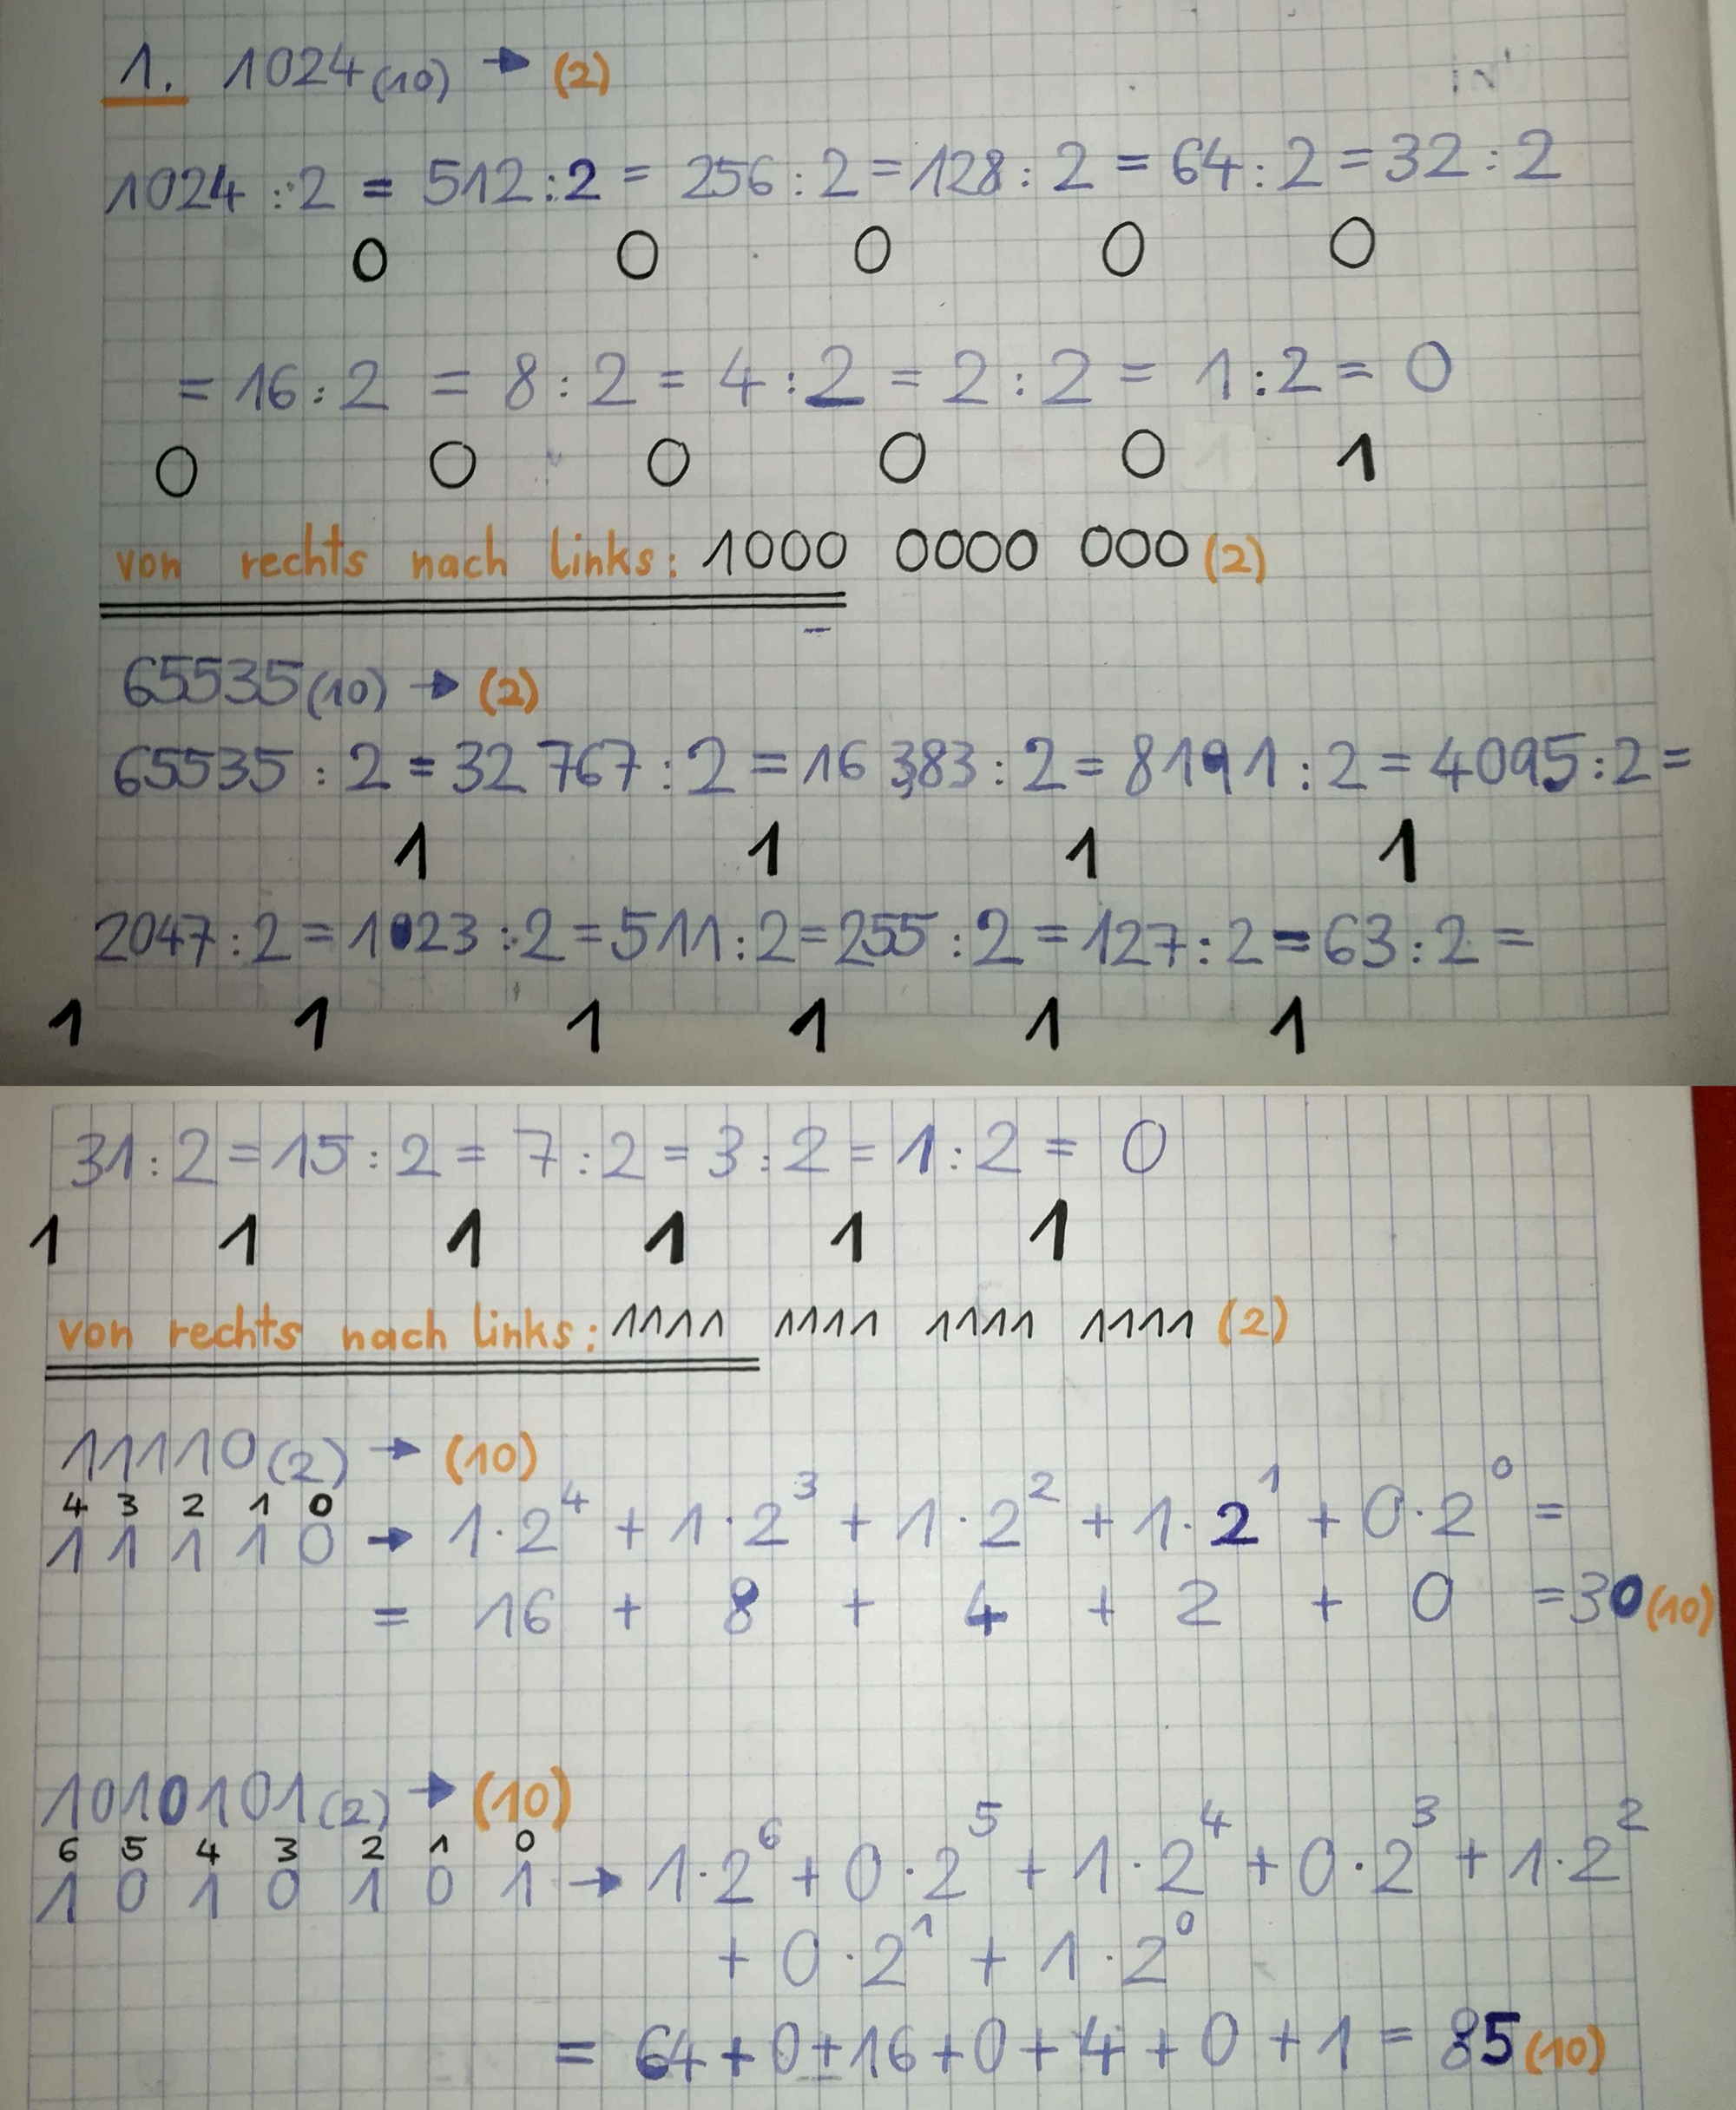 1. 1024(10) → (2)
1024 : 2 = 512 : 2 = 256 : 2 = 128 : 2 = 64 : 2 = 32 : 2
0 0 0 0 0
= 16 : 2 = 8 : 2 = 4 : 2 = 2 : 2 = 1 : 2 = 0
0 0 0 0 0 1
von rechts nach links: 1000 0000 000 (2)
65535(10) → (2)
65535 : 2 = 32 767 : 2 = 16 383 : 2 = 8191 : 2 = 4095 : 2 =
1 1 1 1
2047 : 2 = 1023 : 2 = 511 : 2 = 255 : 2 = 127 : 2 = 63 : 2 =
1 1 1 1 1 1
31 : 2 = 15 : 2 = 7 : 2 = 3 : 2 = 1 : 2 = 0
1 1 1 1 1 1
von rechts nach links: 1111 1111 1111 1111 (2)
11110(2) → (10)
4 3 2 1 0
1 1 1 1 0 → 1·2⁴ + 1·2³ + 1·2² + 1·2¹ + 0·2⁰ =
= 16 + 8 + 4 + 2 + 0 = 30(10)
1010101(2) → (10)
6 5 4 3 2 1 0
1 0 1 0 1 0 1 → 1·2⁶ + 0·2⁵ + 1·2⁴ + 0·2³ + 1·2²
+ 0·2¹ + 1·2⁰
= 64 + 0 + 16 + 0 + 4 + 0 + 1 = 85(10)